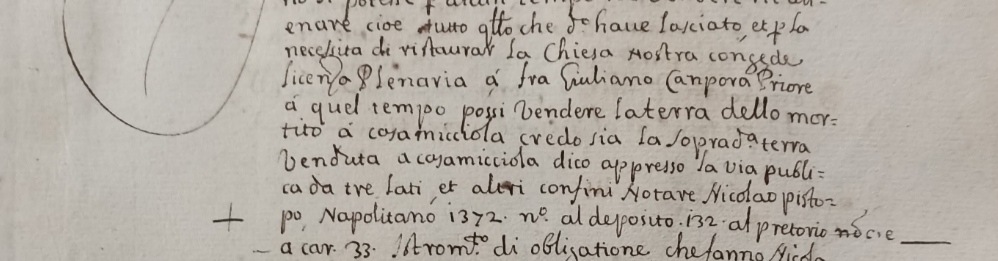 enare cioe tutto qtto che do haue lasciato, et p la
necessita di ristaurar la Chiesa nostra concede
licenza Plenaria á fra Giuliano Canpora Priore
á quel tempo possi Vendere la terra dello mor=
tito á casamicciola credo sia la soprada terra
Venduta a casamicciola dico appresso la via publi=
ca da tre lati, et altri confini Notare Nicolao pisto=
po, Napolitano 1372. no. al deposito. 132. al pretorio nó c'e
a car. 33. Istromto di obligatione che fanno